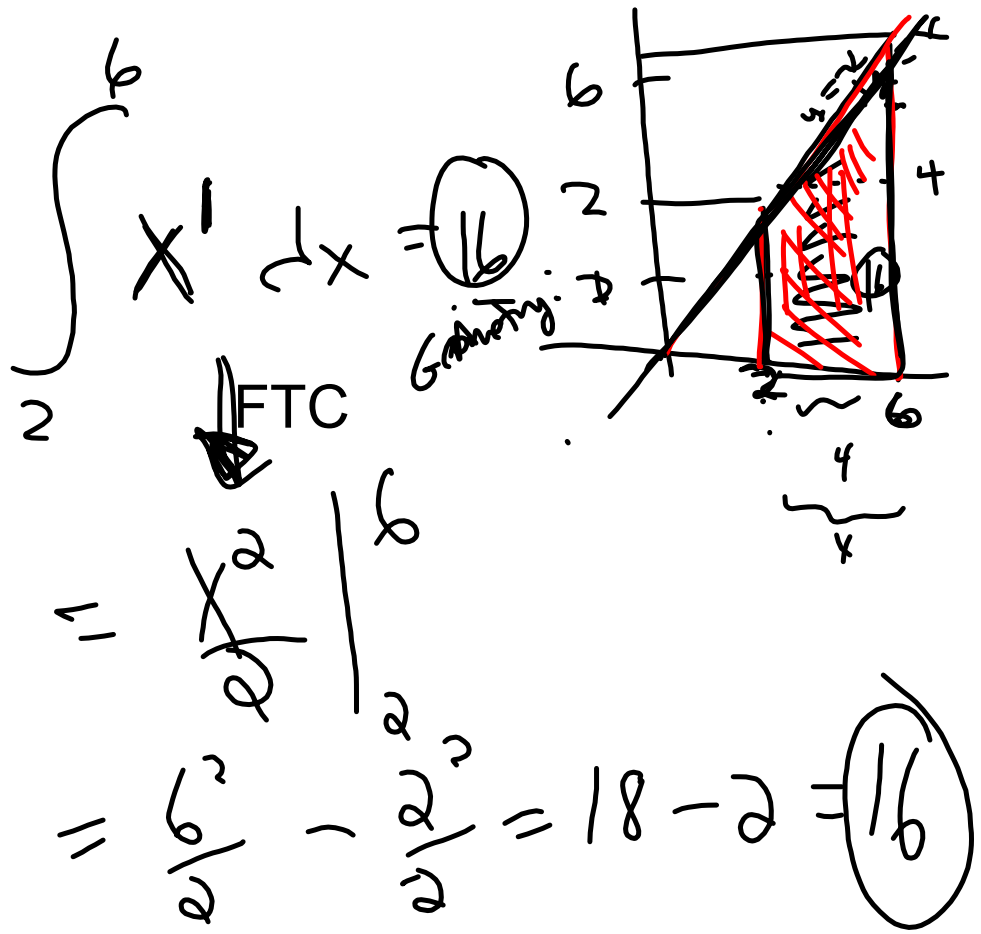 ∫₂⁶ x¹ dx = 16
Geometry
6
2
4
16
2
6
4
FTC
= x²/2 |₂⁶
= 6²/2 - 2²/2 = 18 - 2 = 16